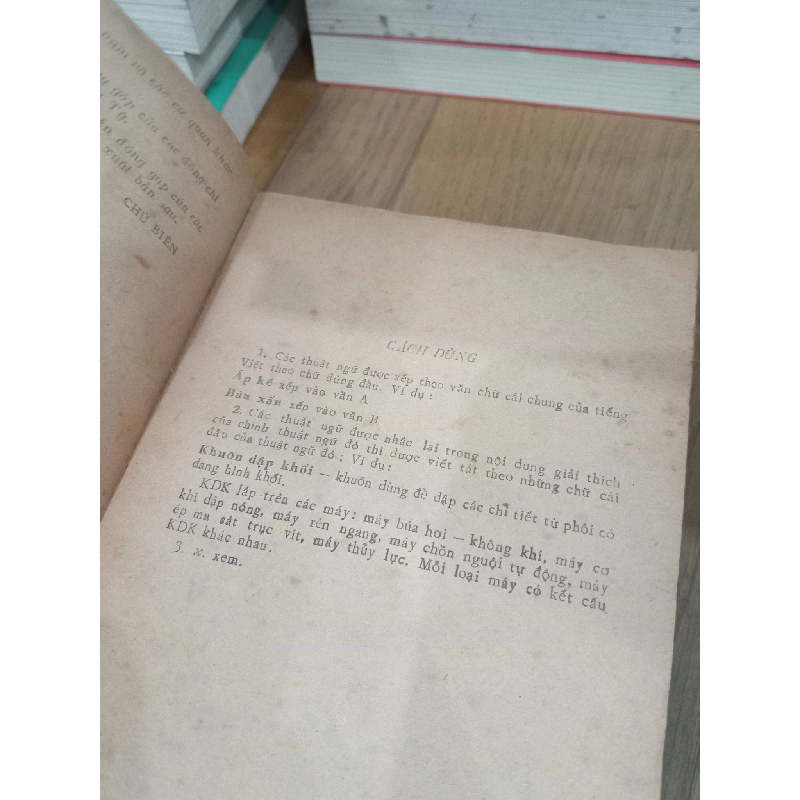 quan khác
góp của các đồng chí
T.g.
đóng góp của các
xuất bản sau.
CHỦ BIÊN
CÁCH DÙNG
1. Các thuật ngữ được xếp theo vần chữ cái chung của tiếng
Việt theo chữ đứng đầu. Ví dụ :
Áp kế xếp vào vần A
Bàn xấn xếp vào vần B
2. Các thuật ngữ được nhắc lại trong nội dung giải thích
của chính thuật ngữ đó thì được viết tắt theo những chữ cái
đầu của thuật ngữ đó ; Ví dụ :
Khuôn dập khối — khuôn dùng để dập các chi tiết từ phôi có
dạng hình khối.
KDK lắp trên các máy : máy búa hơi — không khí, máy cơ
khí dập nóng, máy rèn ngang, máy chồn nguội tự động, máy
ép ma sát trục vít, máy thủy lực. Mỗi loại máy có kết cấu
KDK khác nhau.
3. x. xem.